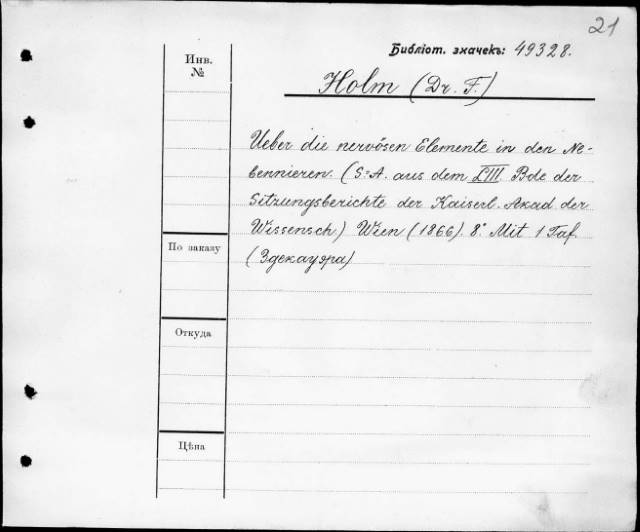 21
Библіот. значекъ: 49328.
Инв.
№
Holm (Dr. F.)
Ueber die nervösen Elemente in den Ne-
bennieren. (S=A. aus dem LIII. Bde der
Sitzungsberichte der Kaiserl. Akad der
Wissensch) Wien (1866). 8° Mit 1 Taf.
(Здекауэра)
По заказу
Откуда
Цѣна